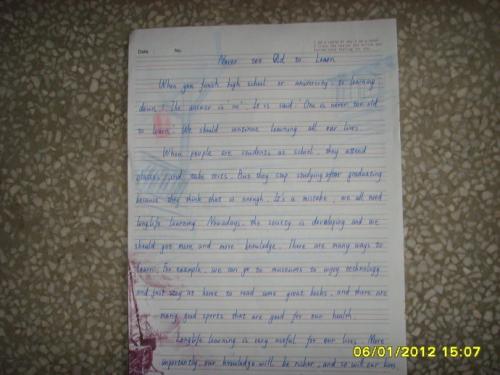 Date No.
Never too Old to Learn
When you finish high school or university, is learning
down? The answer is "no". It is said "One is never too old
to learn". We should continue learning all our lives.
When people are students as school, they attend
classes and take tests. But they stop studying after graduating
because they think that is enough. It's a mistake, we all need
longlife learning. Nowadays, the society is developing and we
should get more and more knowledge. There are many ways to
learn. For example, we can go to museums to enjoy technology
and just stay at home to read some great books, and there are
many good sports that are good for our health.
Longlife learning is very useful for our lives. More
importantly, our knowledge will be richer, and so will our lives
06/01/2012 15:07